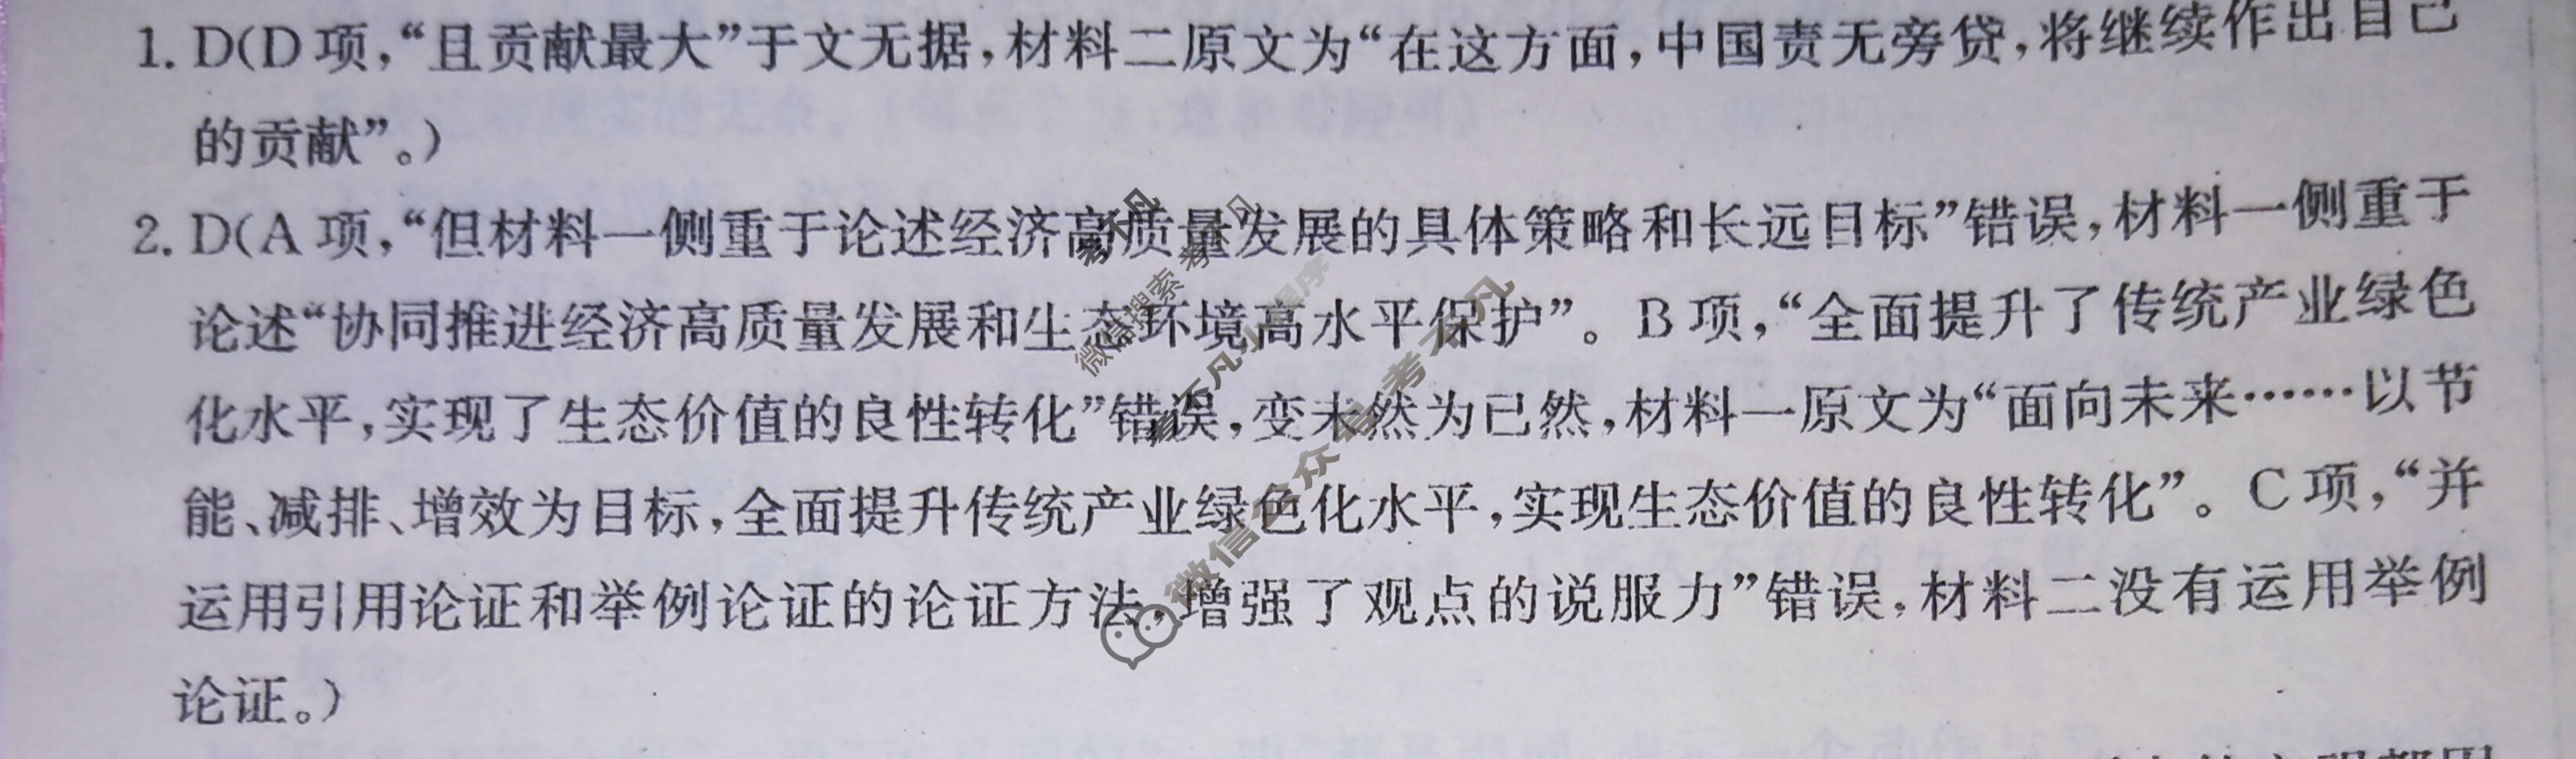 1. D(D项,“且贡献最大”于文无据,材料二原文为“在这方面,中国责无旁贷,将继续作出自己
的贡献”。)
2. D(A项,“但材料一侧重于论述经济高质量发展的具体策略和长远目标”错误,材料一侧重于
论述“协同推进经济高质量发展和生态环境高水平保护”。B项,“全面提升了传统产业绿色
化水平,实现了生态价值的良性转化”错误,变未然为已然,材料一原文为“面向未来……以节
能、减排、增效为目标,全面提升传统产业绿色化水平,实现生态价值的良性转化”。C项,“并
运用引用论证和举例论证的论证方法,增强了观点的说服力”错误,材料二没有运用举例
论证。)
考不凡
微信搜索 考不凡
考不凡小程序
微信公众号 考不凡